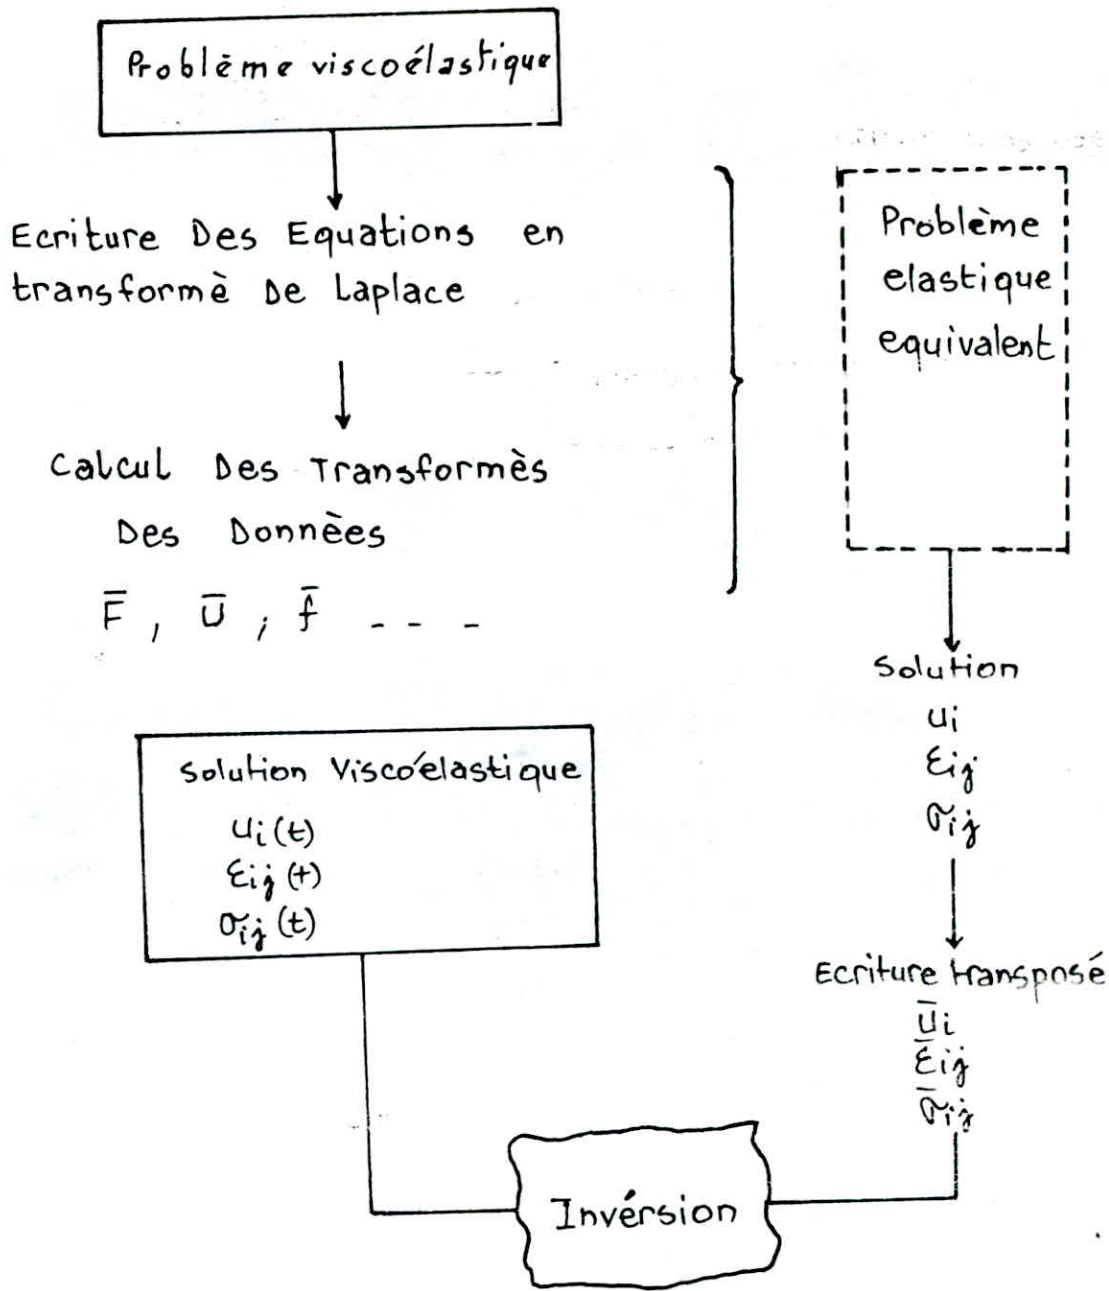 Problème viscoélastique
Ecriture Des Equations en
transformè De Laplace
Calcul Des Transformès
Des Donnèes
F̅ , U̅ , f̅ - - -
Problème
elastique
equivalent
Solution
ui
εij
σij
Ecriture transposé
u̅i
ε̅ij
σ̅ij
Invérsion
Solution Viscoélastique
ui(t)
εij(t)
σij(t)